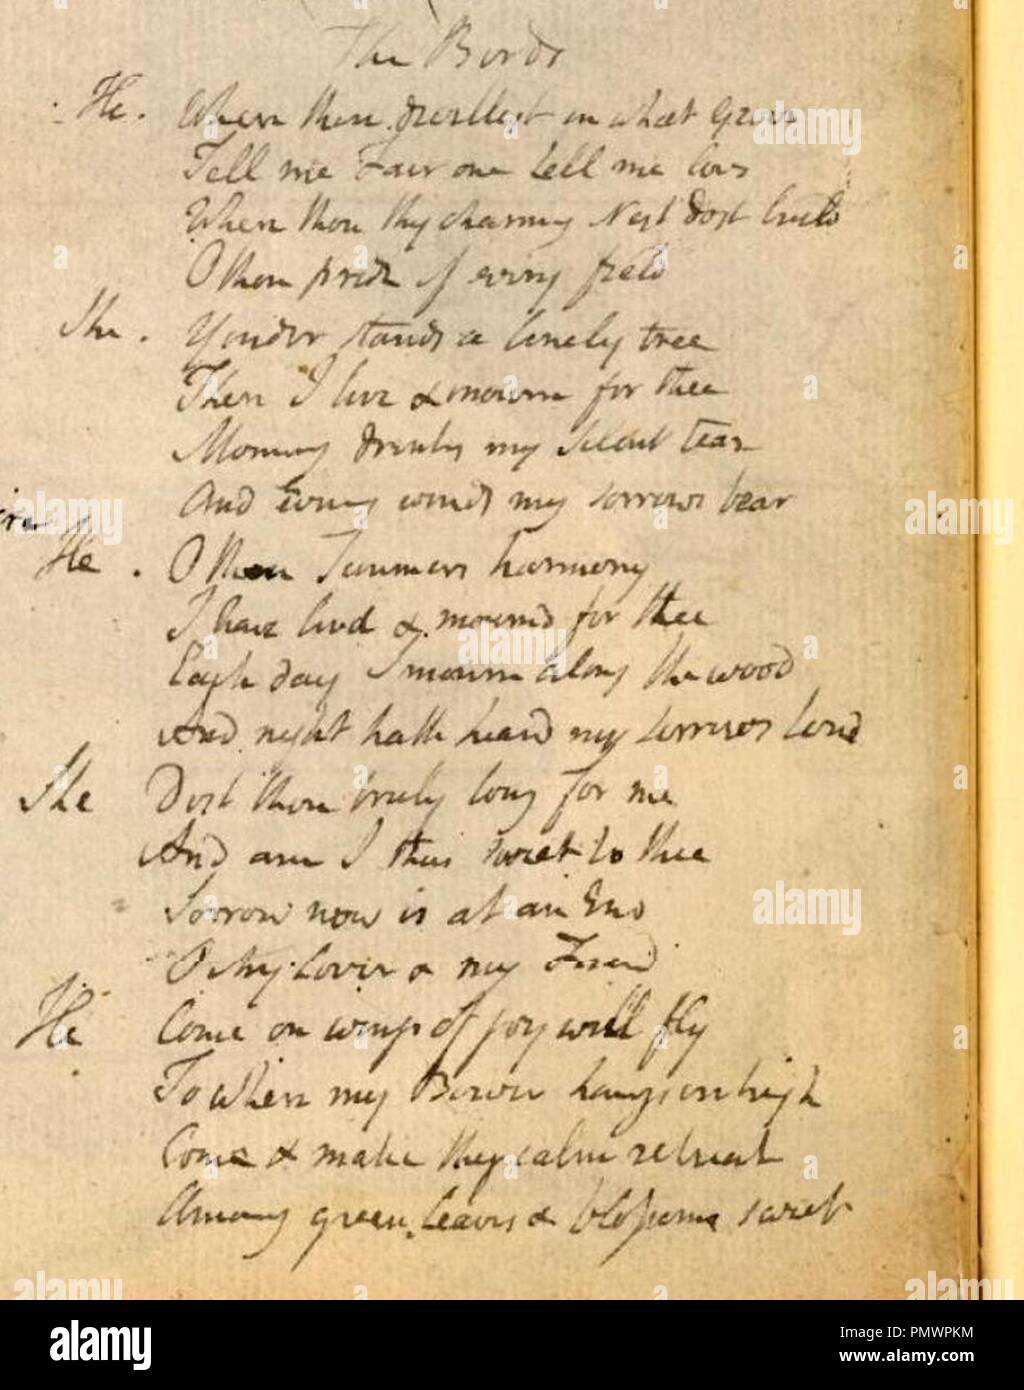 The Birds
He. Where thou dwellest in what Grove
Tell me Fair one tell me love
Where thou thy charming Nest dost build
O thou pride of every field
She. Yonder stands a lonely tree
There I live & mourn for thee
Morning drinks my silent tear
And Evening winds my sorrows bear
He. O thou Summers harmony
I have livd & mournd for thee
Each day I mourn along the wood
And night hath heard my sorrows loud
She Dost thou truly long for me
And am I thus sweet to thee
Sorrow now is at an End
O My Lover & my Friend
He Come on wings of joy well fly
To where my Bower hangs on high
Come & make thy calm retreat
Among green leaves & blossoms sweet
alamy
Image ID: PMWPKM
www.alamy.com